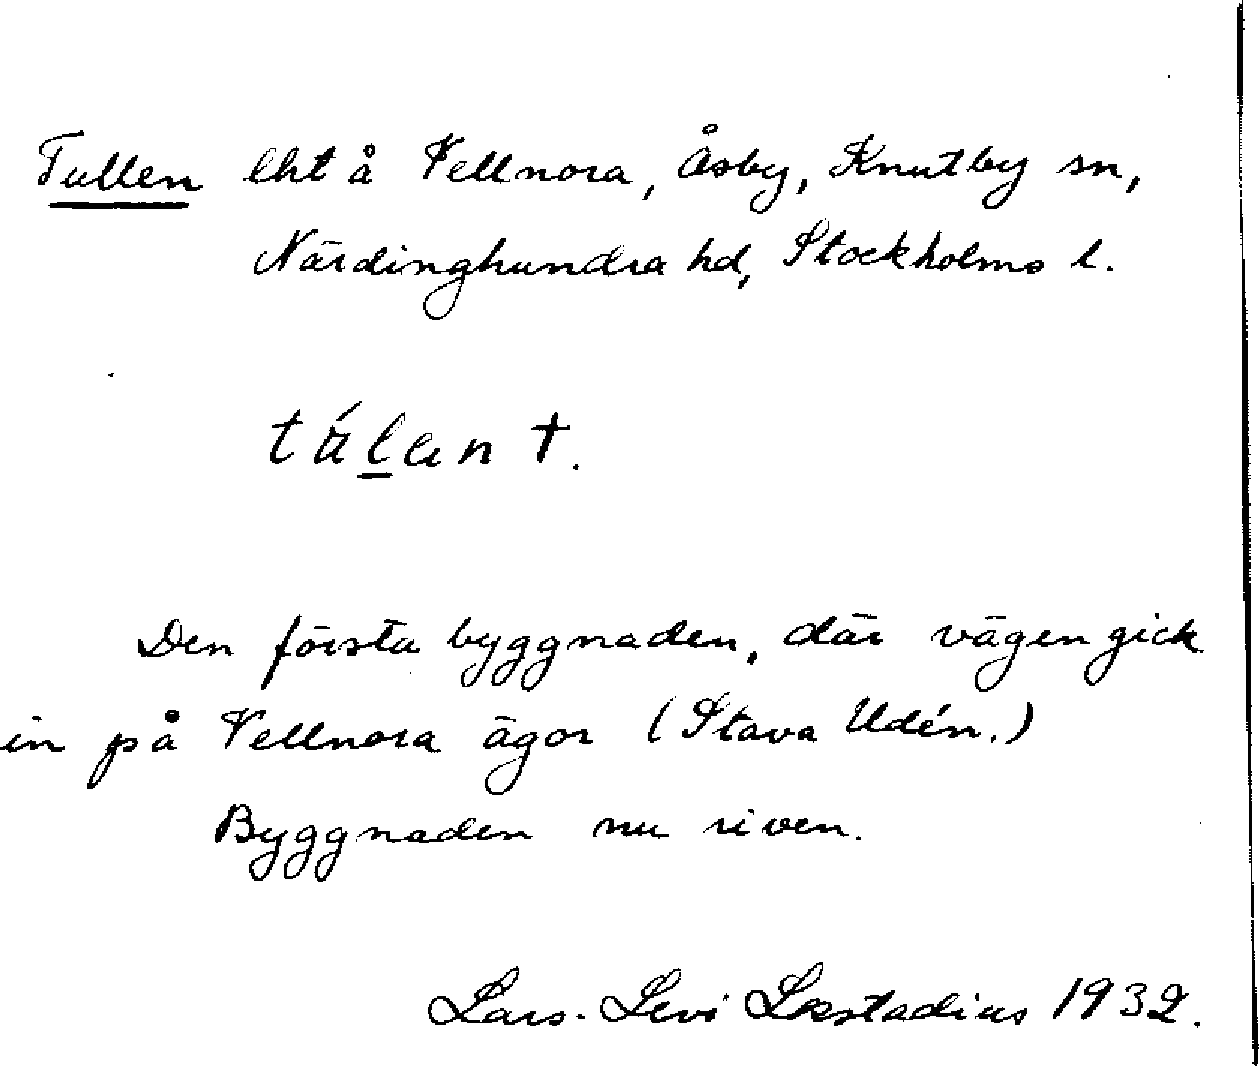 Tullen lht å Vellnora, Åsby, Knutby sn,
Närdinghundra hd, Stockholms l.
tú̶lan †.
Den första byggnaden, där vägen gick
in på Vellnora ägor (Stava Udén.)
Byggnaden nu riven.
Lars-Levi Læstadius 1932.